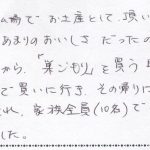 ム場でお土産として、頂い
あまりのおいしさだったの
から、「巣ごもり」を買う
で買いに行き、その帰りに
れ、家族全員(10名)で
した。